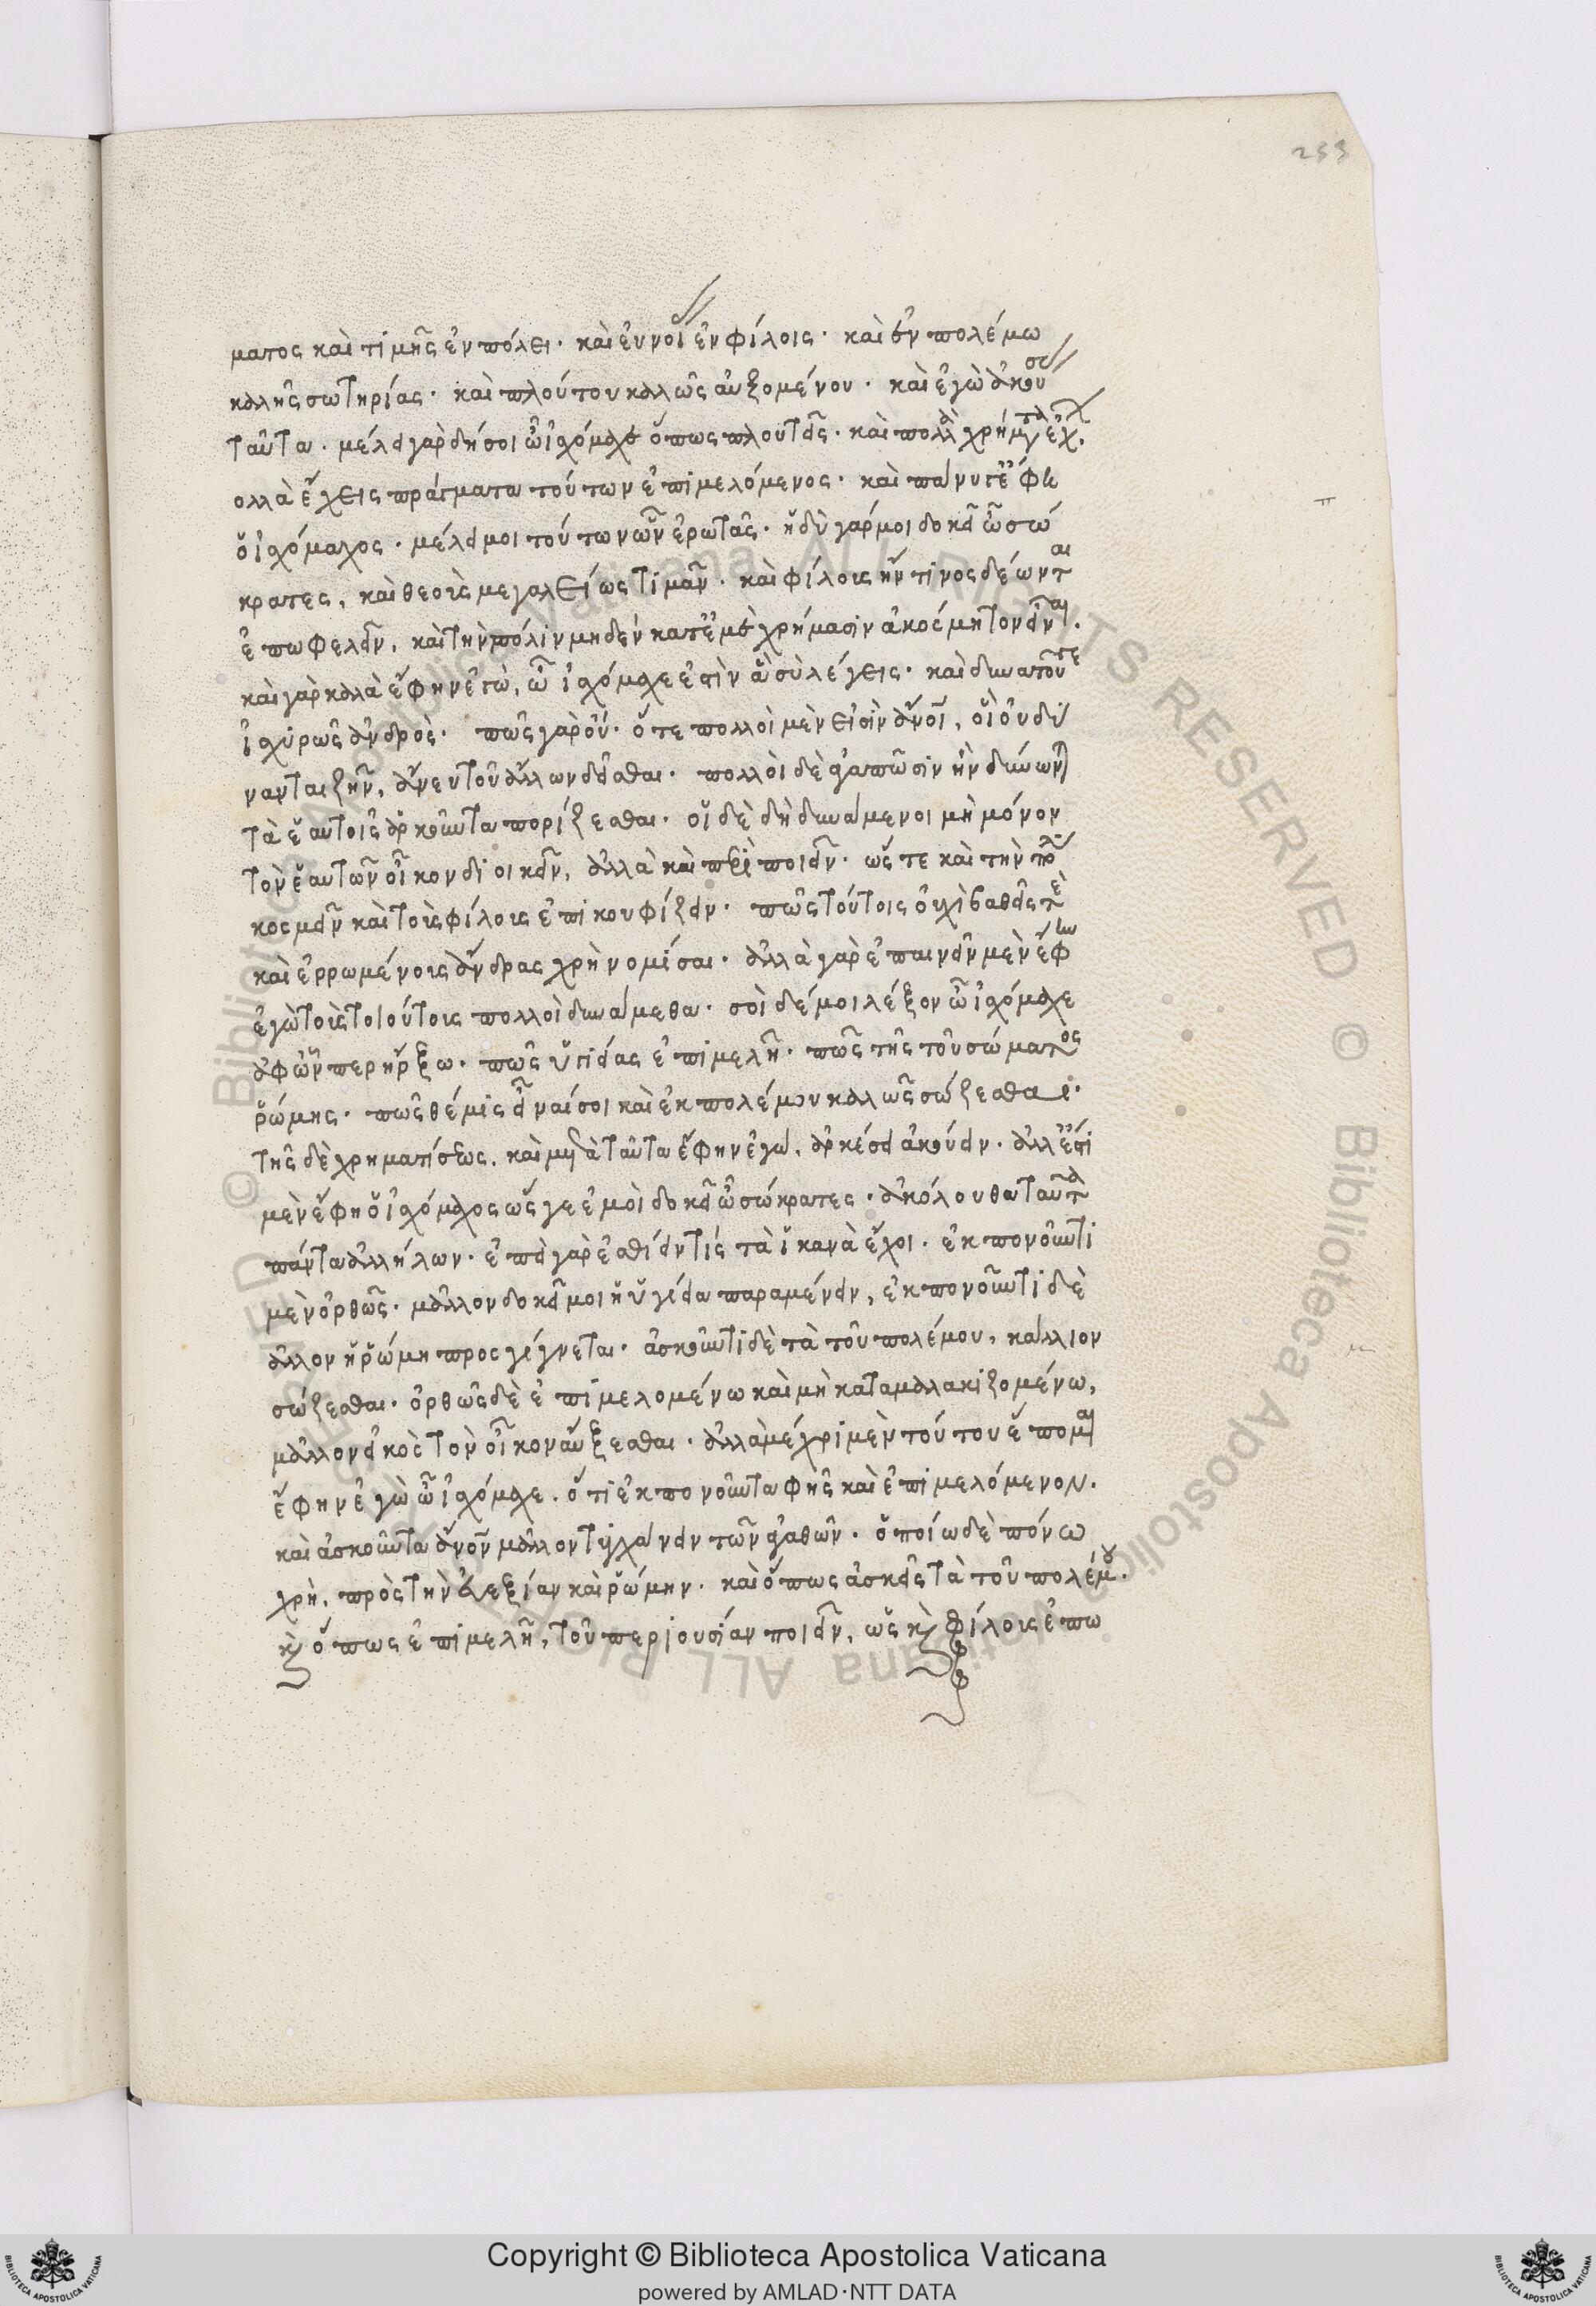 253
ματος καὶ τιμῆς ἐν πόλει· καὶ εὐνοί ἐν φίλοις· καὶ ἐν πολέμω
καλῆς σωτηρίας· καὶ πλούτου καλῶς αὐξομένου· καὶ ἐγὼ ἀκουσ
ταῦτα· μέλει γὰρ δή σοι ὦ ἰσχόμαχε ὅπως πλουτεῖς· καὶ πολλὰ χρήματα ἔχ.
ολλὰ ἔχεις πράγματα τούτων ἐπιμελόμενος· καὶ πάνυ γ' ἔφη
π
ὁ ἰσχόμαχος· μέλει μοι τούτων ὧν ἐρωτᾶς· ἡδὺ γάρ μοι δοκεῖ ὦ σώ
κρατες, καὶ θεοὺς μεγαλείως τιμᾶν· καὶ φίλους ἤν τινος δέωνται
ἐπωφελεῖν, καὶ τὴν πόλιν μηδὲν κατ' ἐμὲ χρήμασιν ἀκόσμητον εἶναι.
καὶ γὰρ καλὰ ἔφην ἐγὼ, ὦ ἰσχόμαχε ἐστὶν ἃ σὺ λέγεις· καὶ δυνατοῦ γε
ἰσχυρῶς ἀνδρὸς· πῶς γὰρ οὔ· ὅτε πολλοὶ μὲν εἰσὶν ἄνοι, οἳ οὐ δύ
νανται ζῆν, ἄνευ τοῦ ἄλλων δεῖσθαι· πολλοὶ δὲ ἀγαπῶσιν ἢν δύνων
τὰ ἑαυτοῖς ἀρκοῦντα πορίζεσθαι· οἱ δὲ δὴ δυνάμενοι μὴ μόνον
τὸν ἑαυτῶν οἶκον διοικεῖν, ἀλλὰ καὶ περιποιεῖν· ὥστε καὶ τὴν πόλιν
κοσμεῖν καὶ τοὺς φίλους ἐπικουφίζειν· πῶς τούτους οὐχὶ βαθεῖς τὲ
καὶ ἐρρωμένους ἄνδρας χρὴ νομίσαι· ἀλλὰ γὰρ ἐπαινεῖν μὲν ἔφην
ἐγὼ τοὺς τοιούτους πολλοὶ δυνάμεθα· σὺ δέ μοι λέξον ὦ ἰσχόμαχε
ἀφ' ὧν περ ἤρξω· πῶς ὑγιείας ἐπιμελῆ· πῶς τῆς τοῦ σώματος
ῥώμης· πῶς θέμις εἶναί σοι καὶ ἐκ πολέμου καλῶς σώζεσθαι·
τῆς δὲ χρηματίσεως, καὶ μετὰ ταῦτα ἔφην ἐγὼ, ἀρκέσει ἀκούειν· ἀλλ' ἔστι
μὲν ἔφη ὁ ἰσχόμαχος ὥς γε ἐμοὶ δοκεῖ ὦ σώκρατες· ἀκόλουθα ταῦτα
πάντα ἀλλήλων· ἐπεὶ γὰρ ἐσθίειν τίς τὰ ἱκανὰ ἔχοι· ἐκπονοῦντι
μὲν ὀρθῶς· μᾶλλον δοκεῖ μοι ἡ ὑγίεια παραμένειν, ἐκπονοῦντι δὲ
μ
ᾶλλον ἡ ῥώμη προσγίγνεται· ἀσκοῦντι δὲ τὰ τοῦ πολέμου, κάλλιον
σώζεσθαι· ὀρθῶς δὲ ἐπιμελομένω καὶ μὴ καταμαλακιζομένω,
μᾶλλον εἰκὸς τὸν οἶκον αὔξεσθαι· ἀλλὰ μέχρι μὲν τούτου ἕπομαι
ἔφην ἐγὼ ὦ ἰσχόμαχε· ὅτι ἐκπονοῦντα φῂς καὶ ἐπιμελόμενον.
καὶ ἀσκοῦντα ἄνον μᾶλλον τυγχάνειν τῶν ἀγαθῶν· ὁποίω δὲ πόνω
χρὴ, πρὸς τὴν εὐεξίαν καὶ ῥώμην· καὶ ὅπως ἀσκεῖς τὰ τοῦ πολέμου.
καὶ ὅπως ἐπιμελῆ, τοῦ περιουσίαν ποιεῖν, ὡς καὶ φίλους ἐπω
Copyright © Biblioteca Apostolica Vaticana
powered by AMLAD·NTT DATA